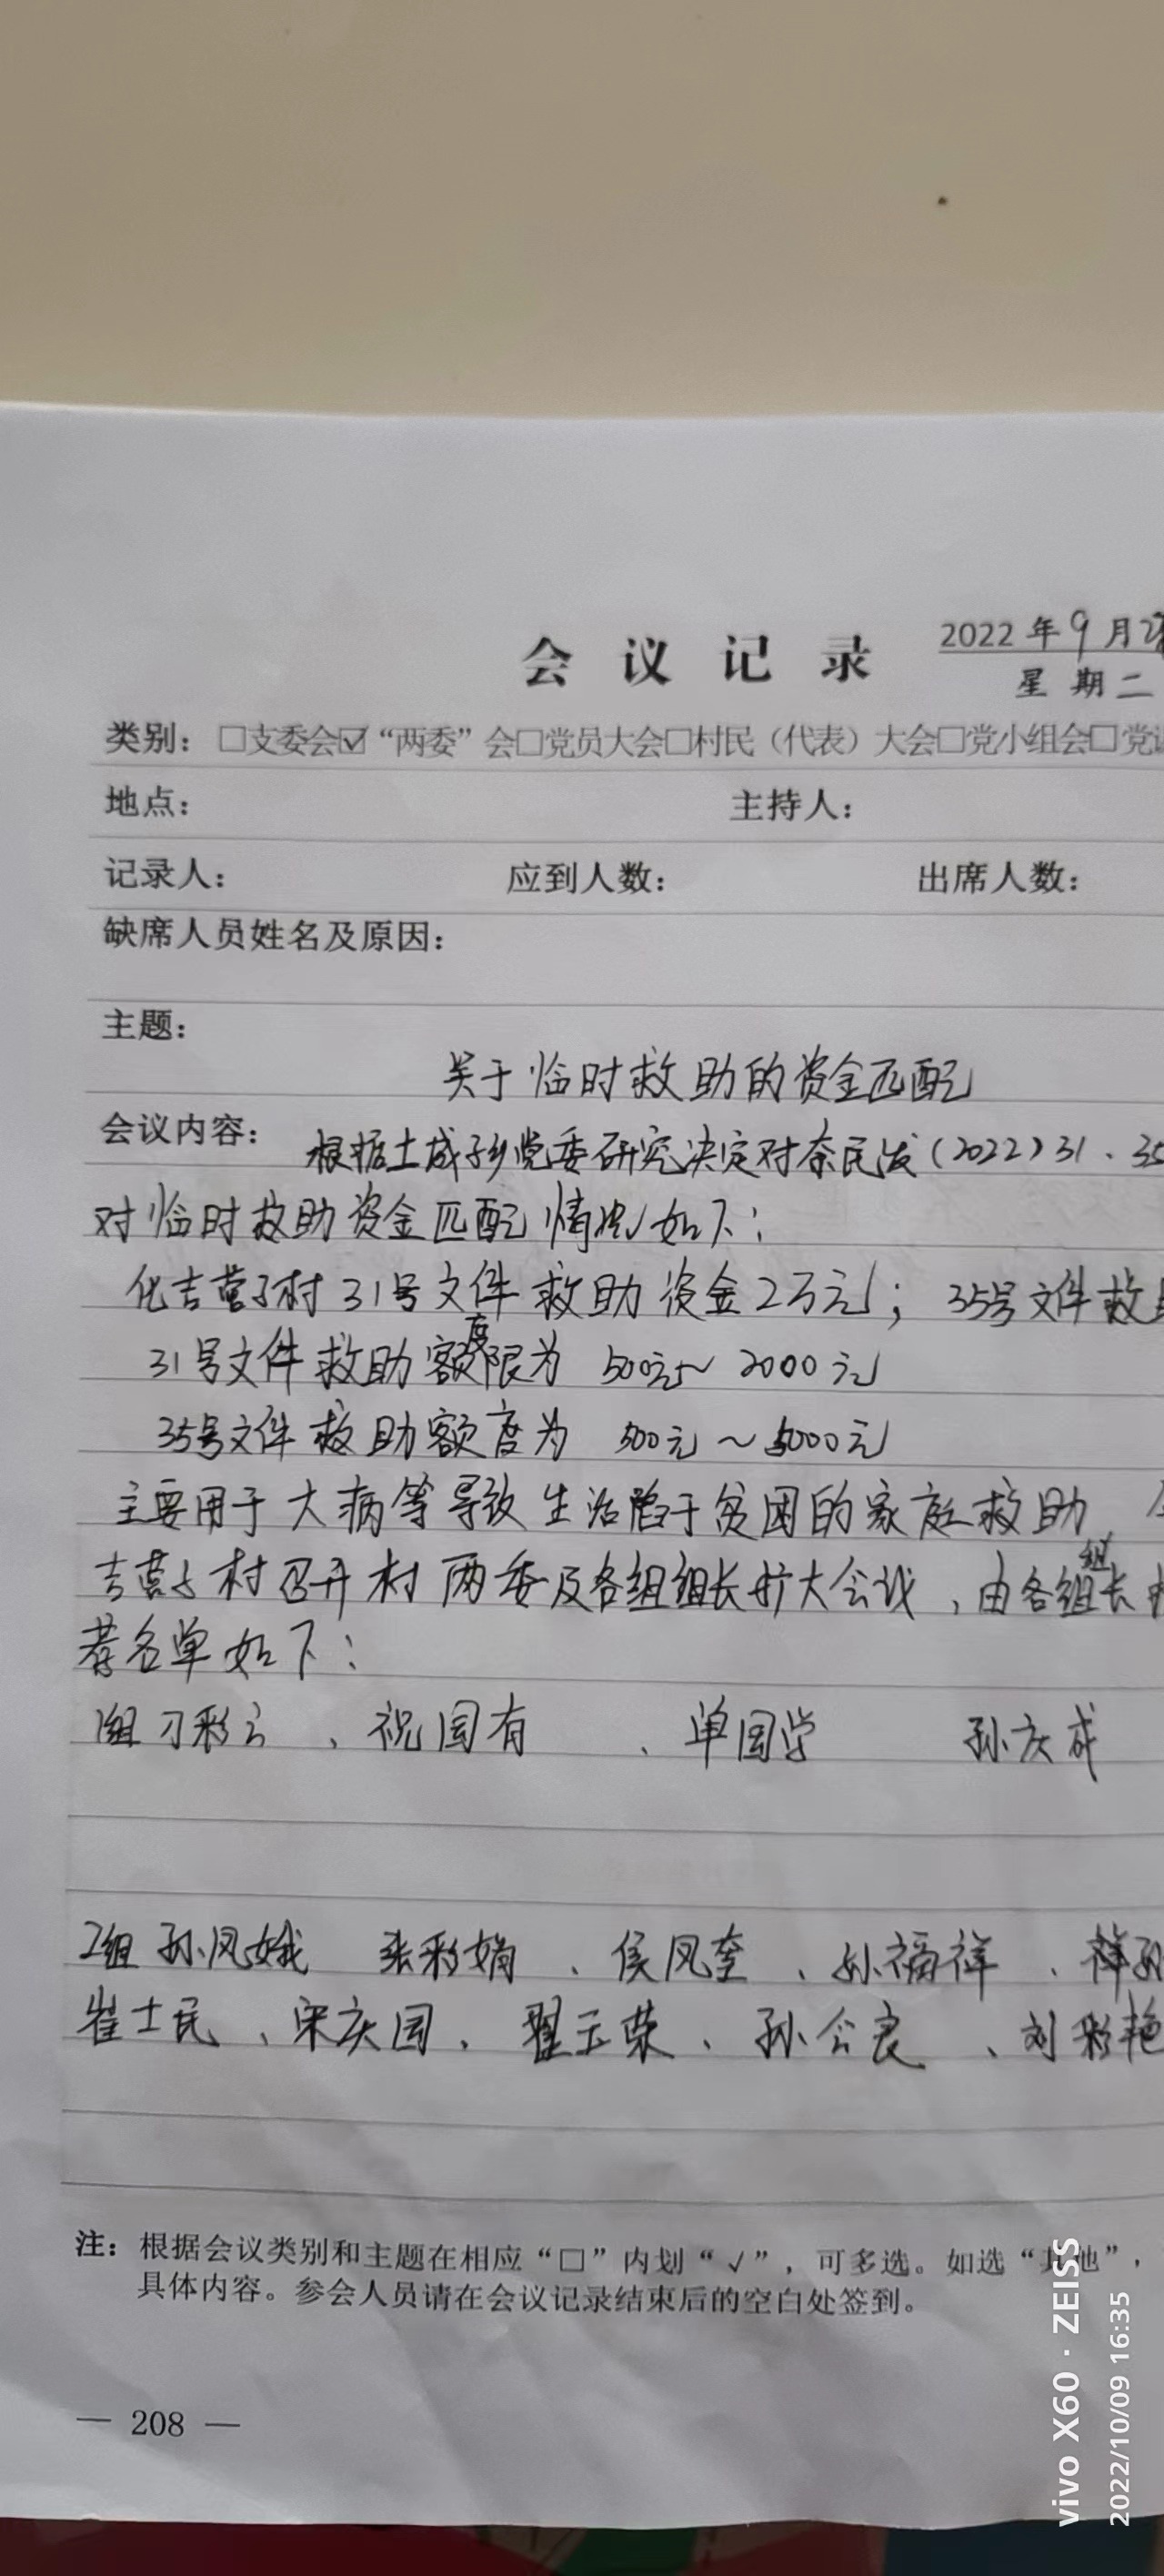 会议记录
2022年9月2
星期二
类别：□支委会☑“两委”会□党员大会□村民（代表）大会□党小组会□党
地点： 主持人：
记录人： 应到人数： 出席人数：
缺席人员姓名及原因：
主题：
关于临时救助的资金匹配
会议内容： 根据土城子乡党委研究决定对奈民发（2022）31、35
对临时救助资金匹配情况如下：
化吉营子村31号文件救助资金2万元；35号文件救
31号文件救助额度限为 500元~2000元
35号文件救助额度为 500元~5000元
主要用于大病等导致生活陷于贫困的家庭救助
吉营子村召开村两委及各组组长扩大会议，由各组组长
荐名单如下：
1组刁彩云、祝国有、单国学 孙庆成
2组孙凤娥 张彩娟、侯凤奎、孙福祥、
崔士民、宋庆国、翟玉荣、孙公良、刘彩艳
注：根据会议类别和主题在相应“□”内划“√”，可多选。如选“其他”，
具体内容。参会人员请在会议记录结束后的空白处签到。
— 208 —
vivo X60 · ZEISS
2022/10/09 16:35